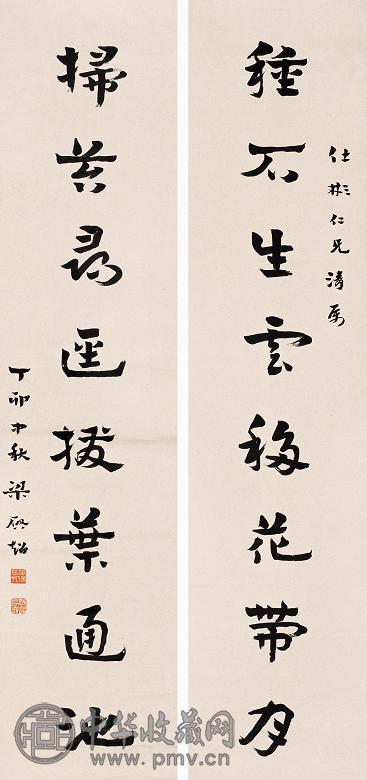 仕彬仁兄清屬
種石生雲移花帶月
掃苔尋逕撥葉通池
丁卯中秋梁啟超
中华收藏网
www.pmv.cn